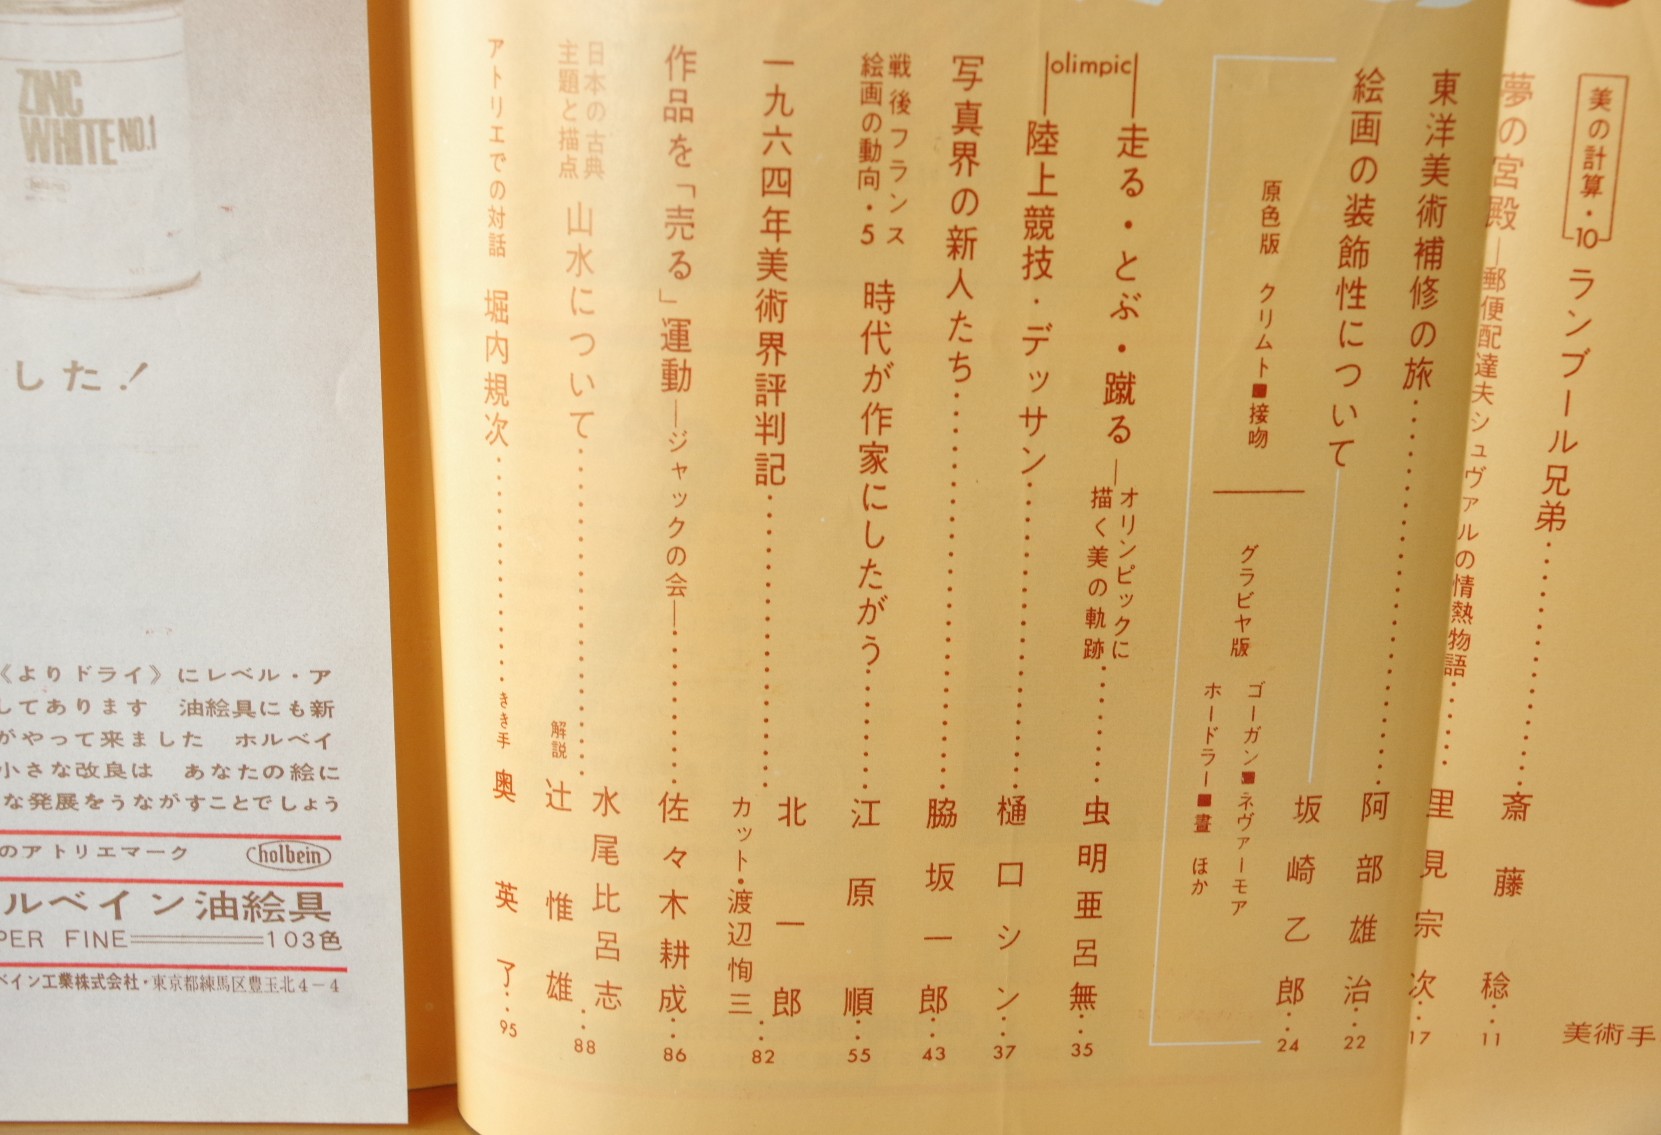 美の計算・10 ランブール兄弟……斎藤 稔…11
夢の宮殿―郵便配達夫シュヴァルの情熱物語……里見宗次…17
東洋美術補修の旅……阿部雄治…22
絵画の装飾性について 坂崎乙郎…24
原色版 クリムト■接吻
グラビヤ版 ゴーガン■ネヴァーモア
ホードラー■晝 ほか
olimpic
走る・とぶ・蹴る―オリンピックに描く美の軌跡……虫明亜呂無…35
陸上競技・デッサン……樋口シン…37
写真界の新人たち……脇坂一郎…43
戦後フランス絵画の動向・5 時代が作家にしたがう……江原 順…55
一九六四年美術界評判記……北 一郎
カット・渡辺恂三…82
作品を「売る」運動―ジャックの会―……佐々木耕成…86
日本の古典 主題と描点 山水について……水尾比呂志
解説 辻 惟雄…88
アトリエでの対話 堀内規次……きき手 奥 英了…95
美術手
ZINC
WHITE NO.1
holbein
した!
《よりドライ》にレベル・ア
してあります 油絵具にも新
がやって来ました ホルベイ
小さな改良は あなたの絵に
な発展をうながすことでしょう
のアトリエマーク holbein
ルベイン油絵具
PER FINE 103色
ベイン工業株式会社・東京都練馬区豊玉北4-4